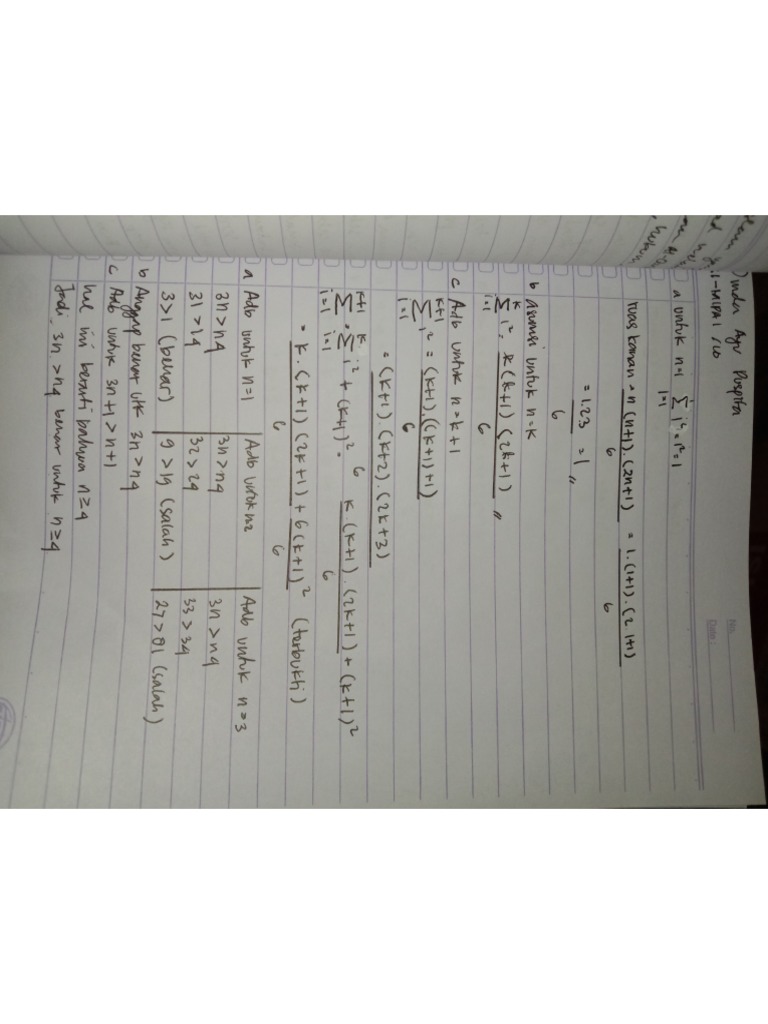 No.
Date:
Inden Ayu Puspita
1-MIPA 1 /20
a untuk n=1 Σ i² = 1² = 1
i=1
ruas kanan = n(n+1).(2n+1) = 1.(1+1).(2.1+1)
6 6
= 1.23 = 1 „
6
b asumsi untuk n=k
k
Σ i² = k(k+1)(2k+1) „
i=1 6
c Adb untuk n=k+1
k+1
Σ i² = (k+1).((k+1)+1)
i=1 6
= (k+1).(k+2).(2k+3)
6
k+1 k
Σ = Σ i² + (k+1)² = k(k+1).(2k+1) + (k+1)²
i=1 i=1 6
= k.(k+1)(2k+1) + 6(k+1)² (terbukti)
6 6
a Adb untuk n=1 Adb untuk n=2 Adb untuk n=3
3n > n4 3n > n4 3n > n4
31 > 14 32 > 24 33 > 34
3 > 1 (benar) 9 > 19 (salah) 27 > 81 (salah)
b Anggap benar utk 3n > n4
c Adb untuk 3n+1 > n+1
hal ini berarti bahwa n ≥ 4
Jadi, 3n > n4 benar untuk n ≥ 4